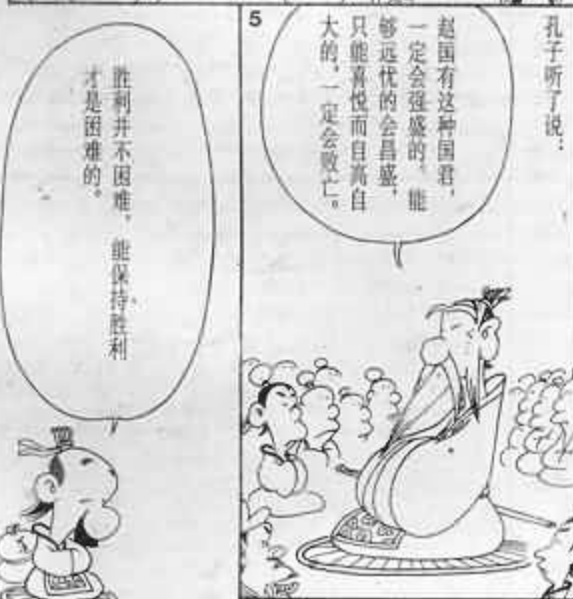 孔子听了说：
5
赵国有这种国君，
一定会强盛的。能
够远忧的会昌盛，
只能喜悦而自高自
大的，一定会败亡。
胜利并不困难，能保持胜利
才是困难的。